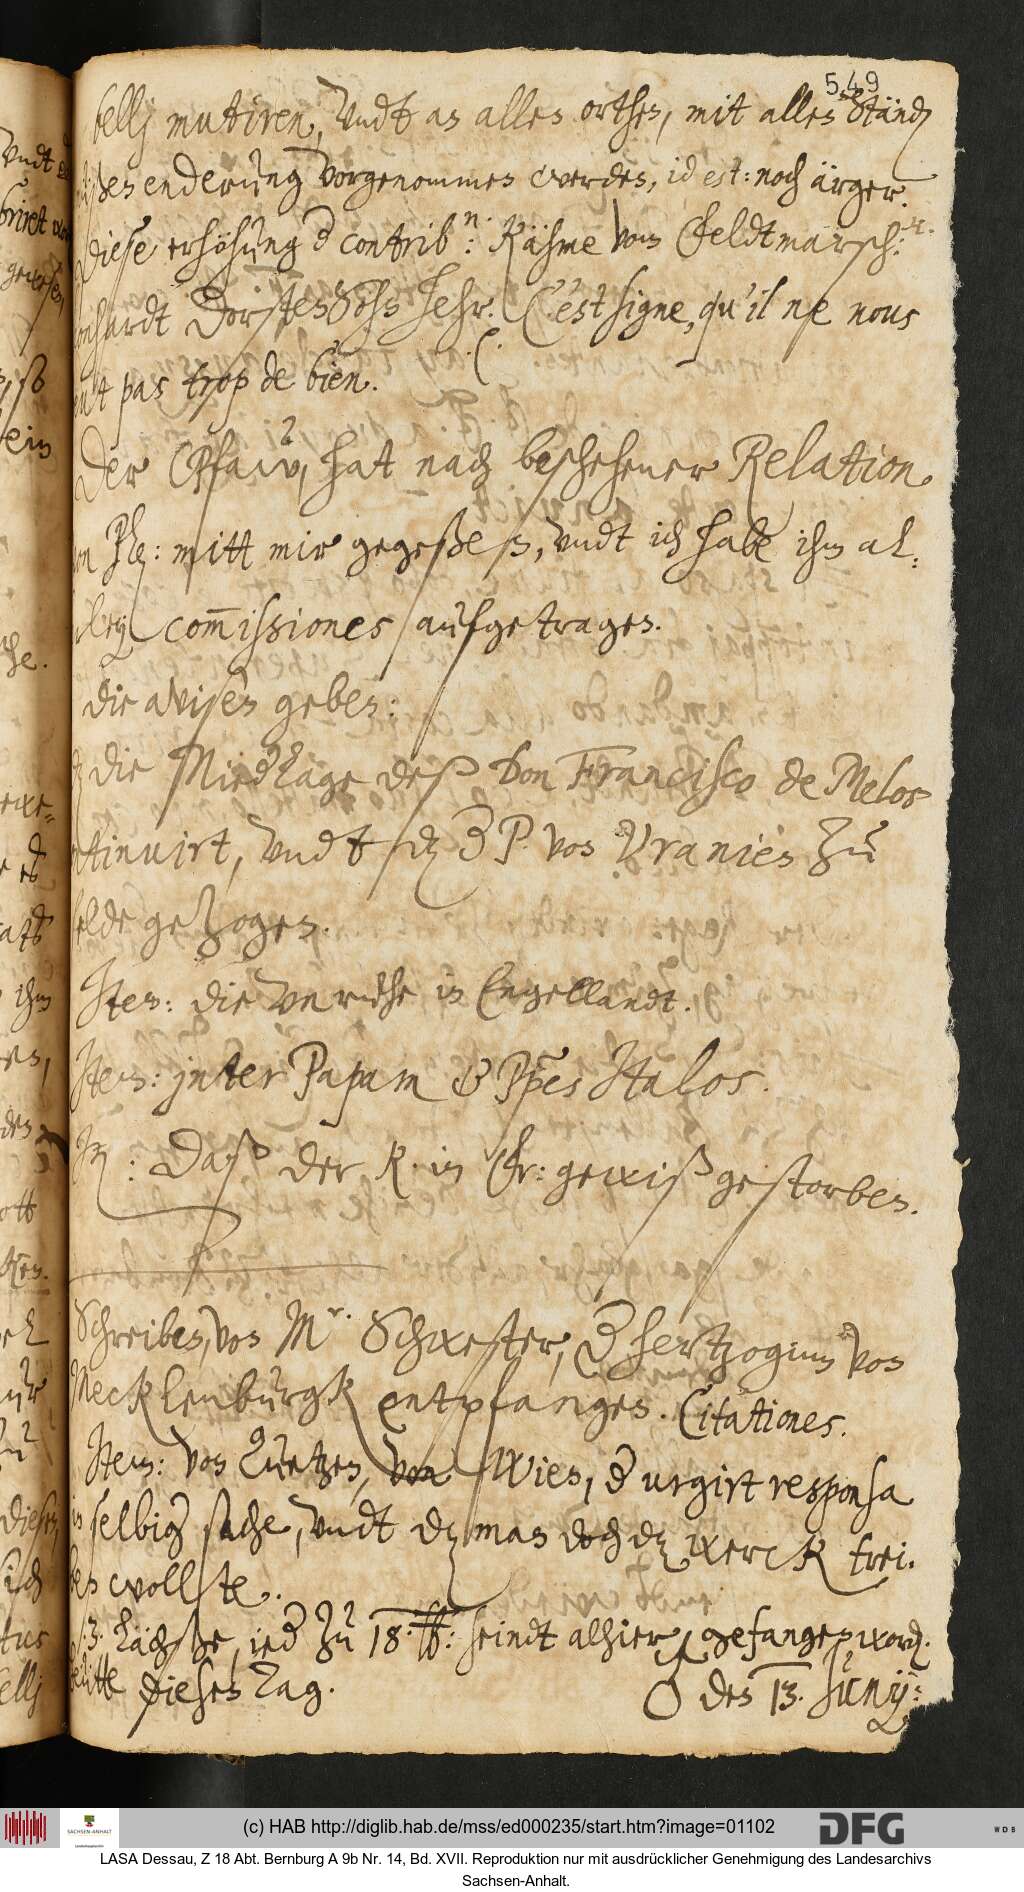 549
bellj mutiren, vndt an allen orthen, mit allen Ständ
enderung vorgenommen werden, id est: noch ärger.
Diese erhöhung d contrib:n Kähme vom Feldtmarsch:
Dorstens Sohn hehr. C'est signe, qu'il ne nous
pas trop de bien.
Der Pfaw, hat nach beschehener Relation
mitt mir gegeßen, vndt ich habe ihm al,
commissiones aufgetragen.
die avisen geben:
die Niederlage deß Don Francisco de Melos
tinuirt, vndt dz der P von Vranien zu
felde gezogen.
Item: die vnruhe in Engellandt.
Item: jnter Papam & Ppes Italos.
Daß der K. in Fr: gewiß gestorben.
Schreiben, von Mr. Schwester, der hertzoginn von
Mecklenburgk entpfangen. Citationes.
Item: von Lützen, von Wien, der urgirt responsa
in selbig sache, vndt dz man doch dz werck trei,
ben wollte.
3. Lächße, ied zu 18. ℔: seindt alhier gefangen word.
heütte dieses Tag.
♂ den 13. Junij:
(c) HAB http://diglib.hab.de/mss/ed000235/start.htm?image=01102
SACHSEN-ANHALT
DFG
WDB
LASA Dessau, Z 18 Abt. Bernburg A 9b Nr. 14, Bd. XVII. Reproduktion nur mit ausdrücklicher Genehmigung des Landesarchivs
Sachsen-Anhalt.